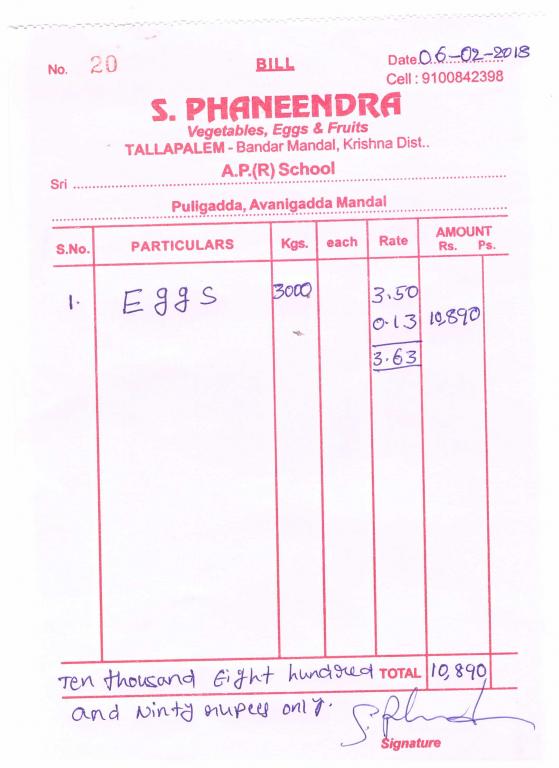 No. 20 BILL Date 06-02-2018
Cell : 9100842398
S. PHANEENDRA
Vegetables, Eggs & Fruits
TALLAPALEM - Bandar Mandal, Krishna Dist..
A.P.(R) School
Sri
Puligadda, Avanigadda Mandal
S.No. PARTICULARS Kgs. each Rate AMOUNT
Rs. Ps.
1. Eggs 3000 3.50
0.13 10,890
3.63
Ten thousand Eight hundred TOTAL 10,890
and Ninty rupees only.
Signature